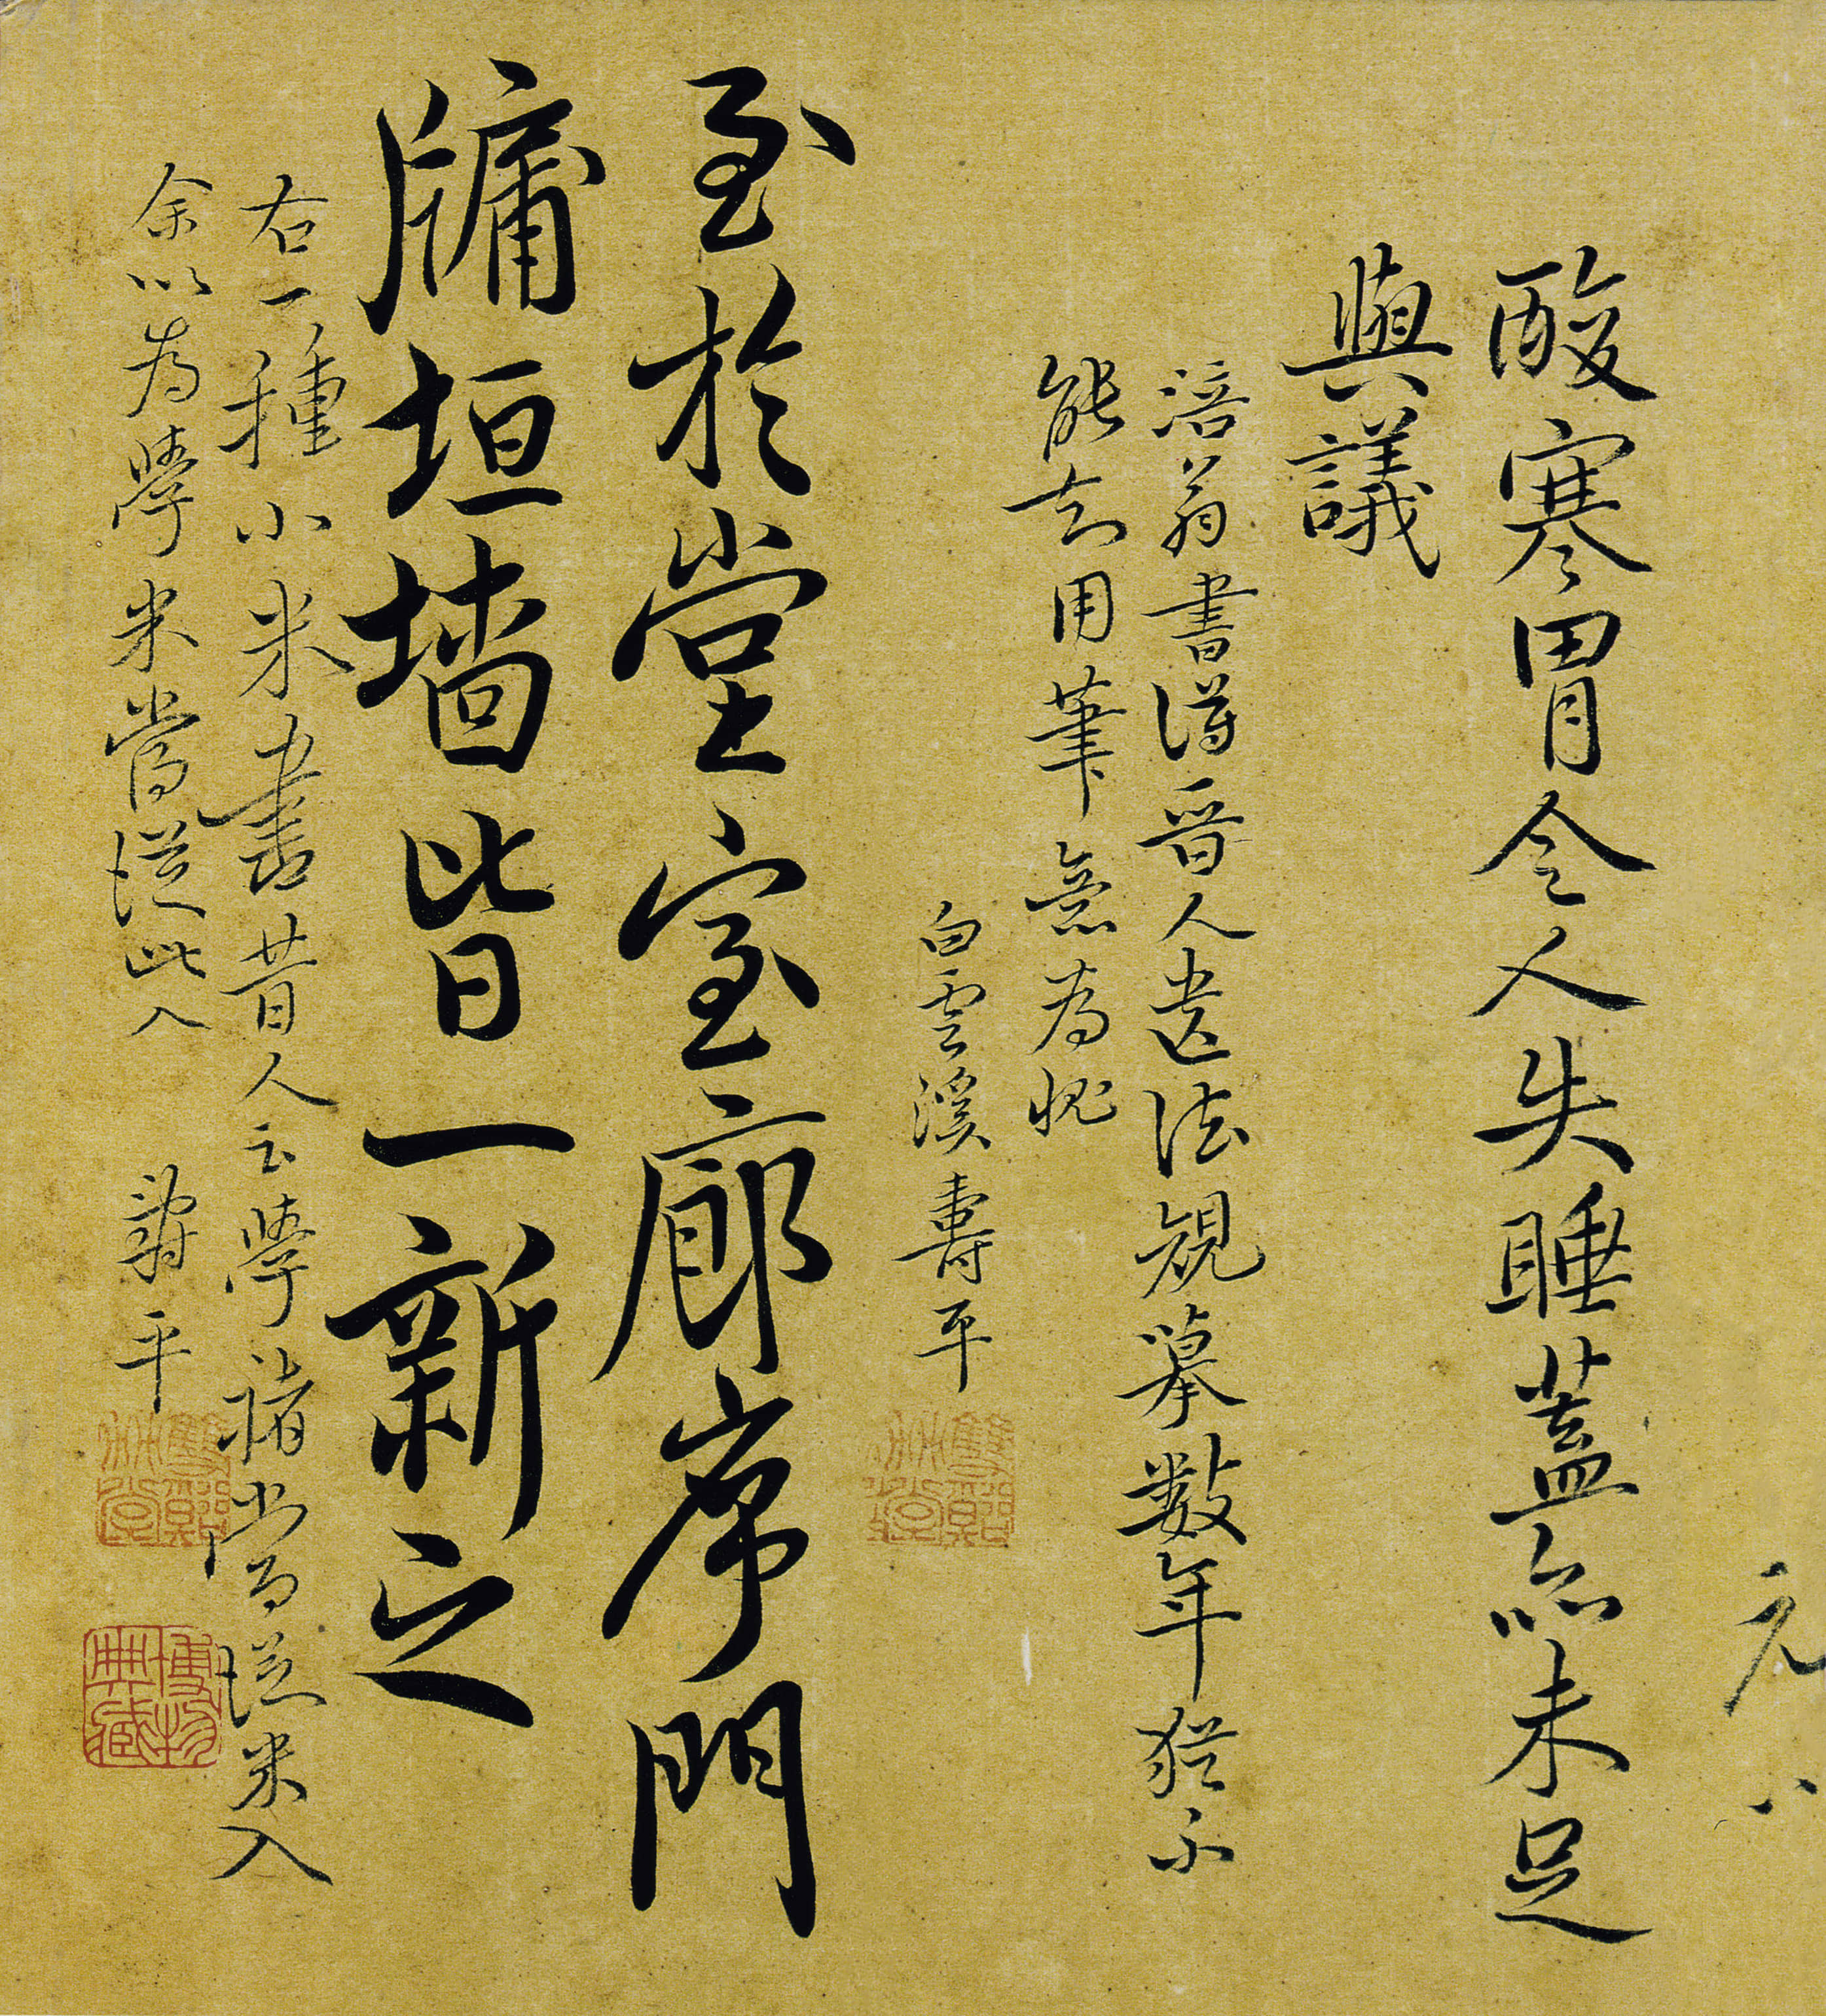 酸寒胃令人失睡蓋亦未足
與議
涪翁書得晉人遺法規摹數年猶不
能去用筆意為愧
白雲溪壽平
至於堂室廊序門
牗垣墻皆一新之
右一種小米書昔人云學褚當從米入
余以為學米當從此入
壽平